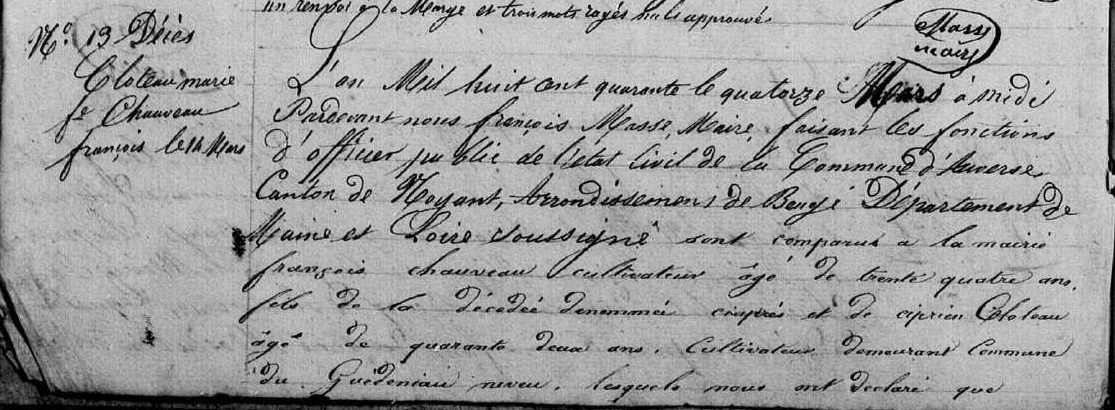 un renvoi à la Marge et trois mots rayés nuls approuvés
Masse
maire
N.° 13 Décès
Cloteau marie
fe Chauveau
françois le 14 Mars
L'an Mil huit cent quarante le quatorze Mars à midi
Pardevant nous françois Masse, Maire, faisant les fonctions
d'officier public de l'état civil de la Commune d'Auverse
Canton de Noyant, Arrondissement de Baugé Département de
Maine et Loire soussigné sont comparus a la mairie
françois chauveau cultivateur âgé de trente quatre ans,
fils de la décédée denommée ciaprès et de ciprien Cloteau
âgé de quarante deux ans, Cultivateur demeurant Commune
du Guédeniau neveu, lesquels nous ont declaré que